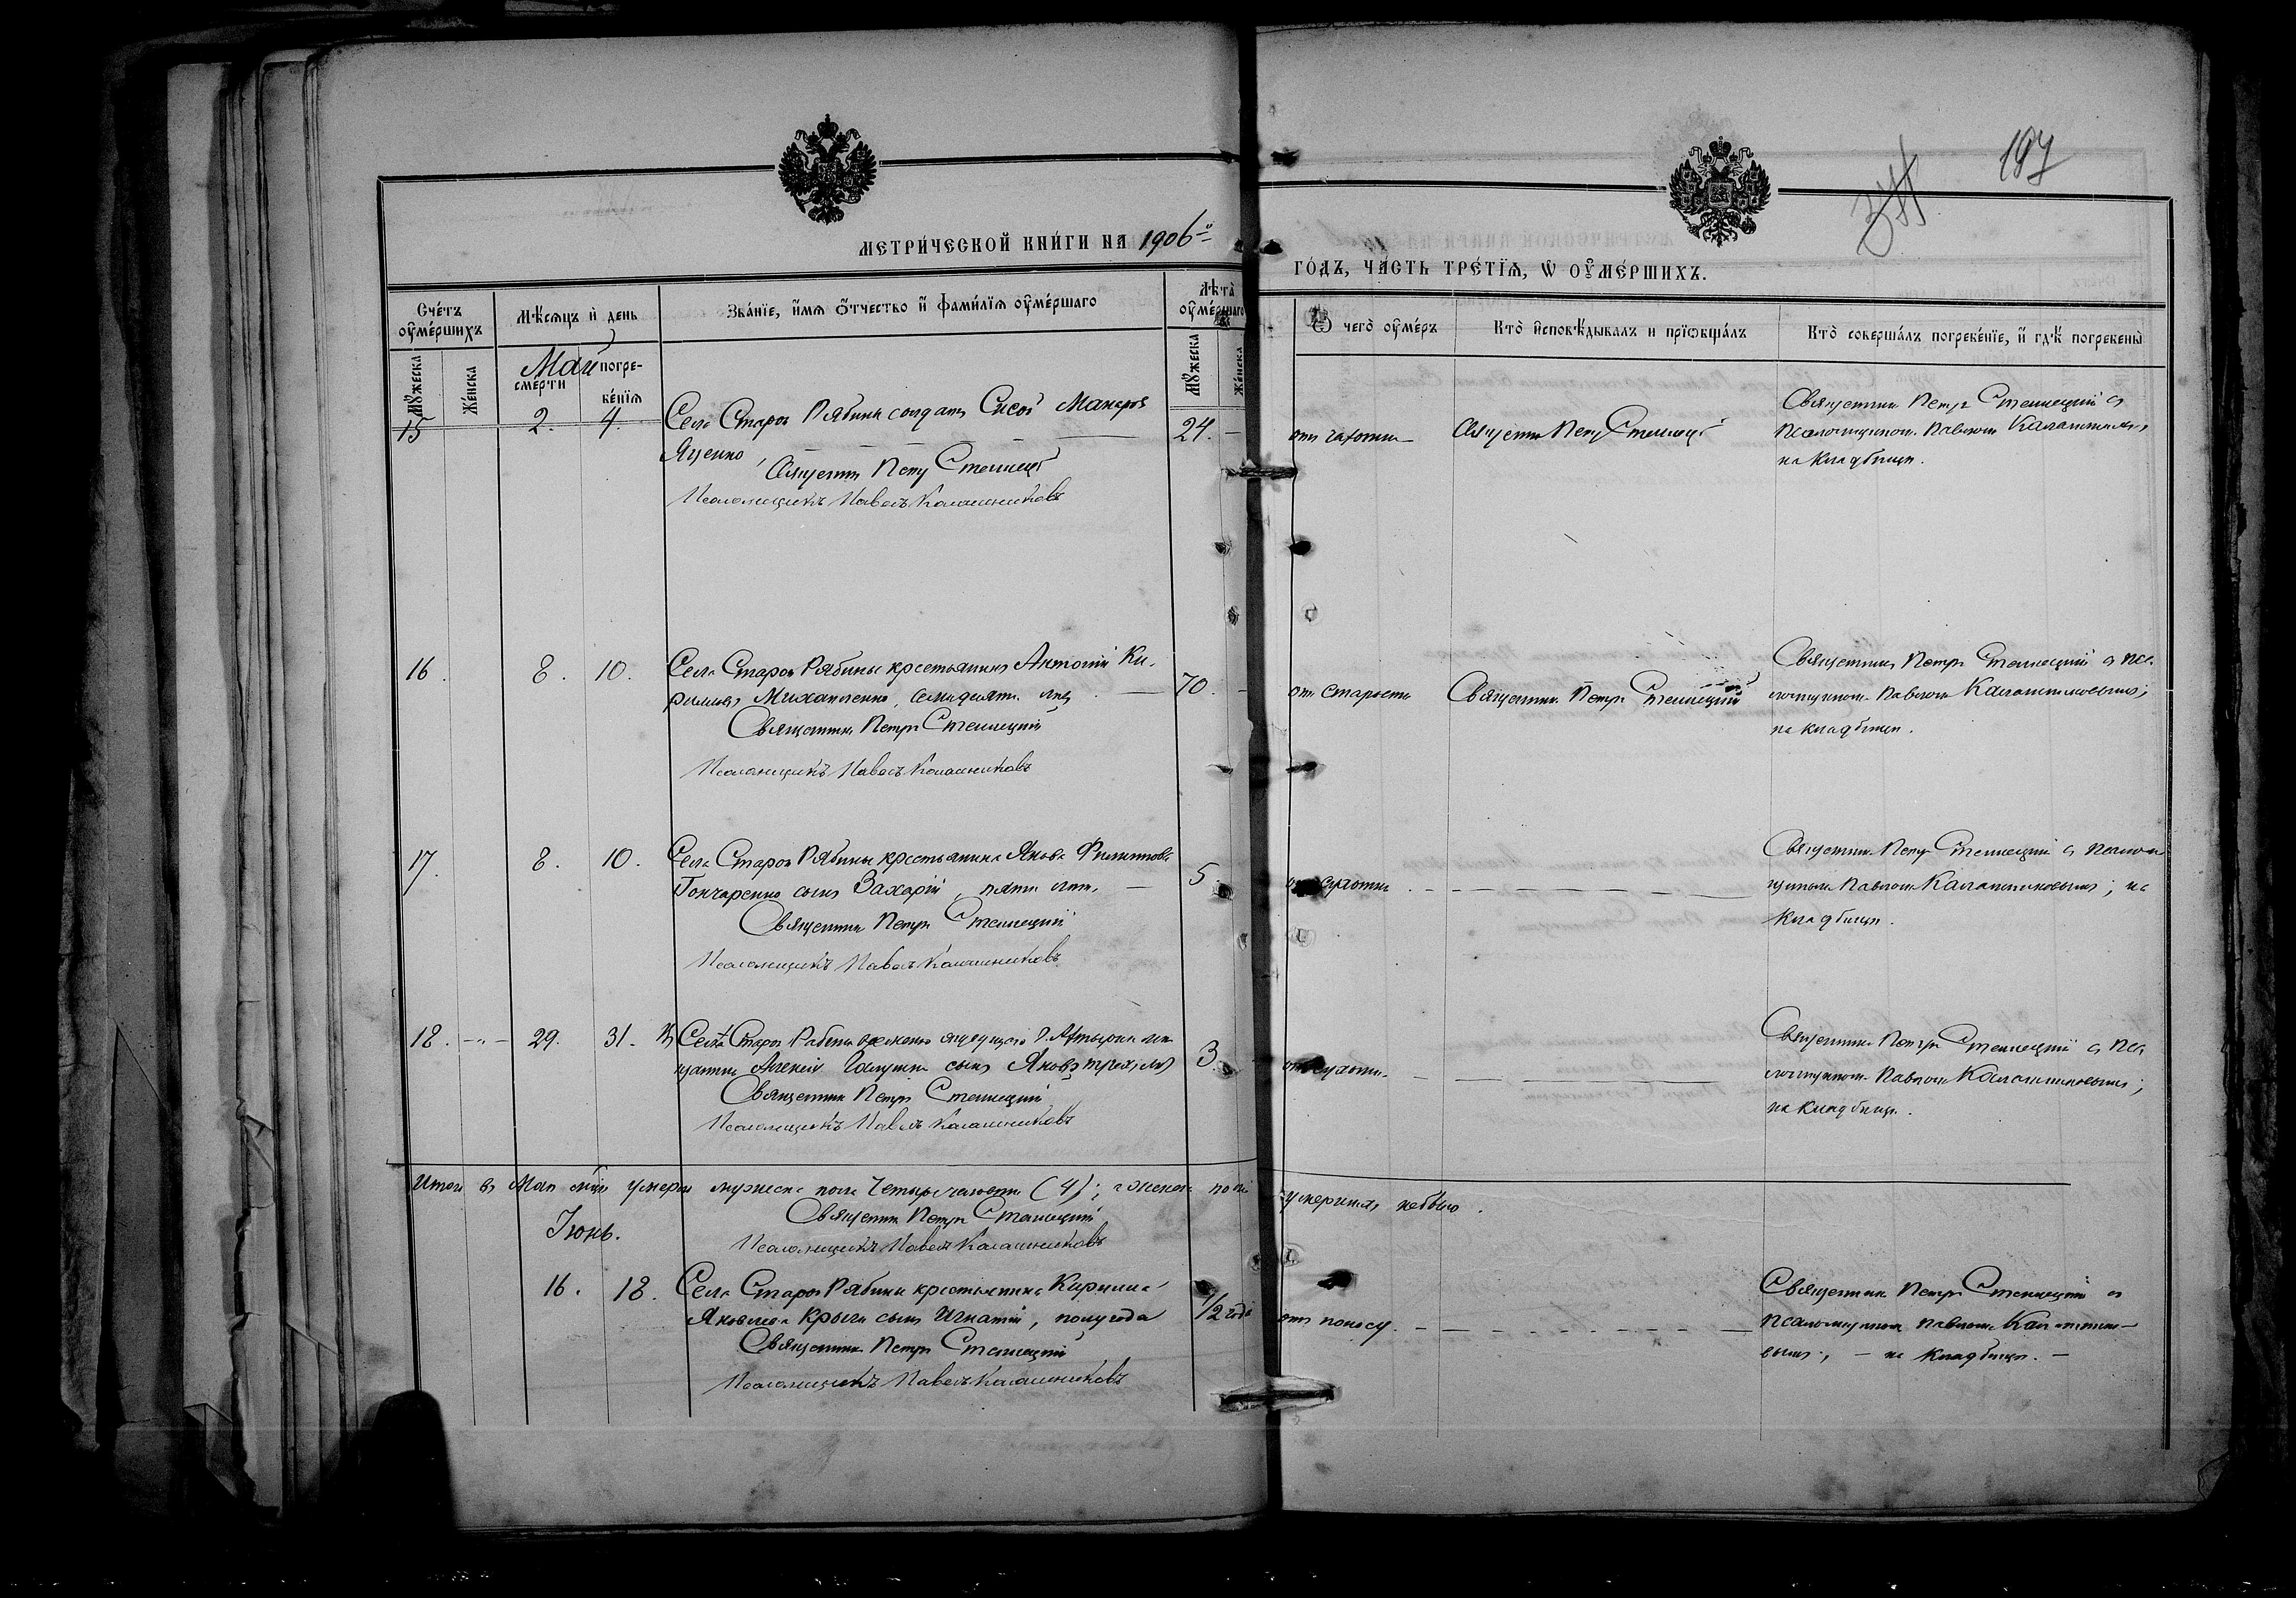 197
МЕТРИ́ЧЕСКОЙ КНИ́ГИ НА 1906-й
ГО́ДЪ, ЧА́СТЬ ТРЕ́ТІѦ, Ѡ ОУМЕ́РШИХЪ.
Сче́тъ оуме́ршихъ
Мѣ́сѧцъ и̂ день
Зва́нїе, и҆́мѧ ѻ҆́тчество и҆ фами́лїѧ оуме́ршагѡ
Лѣ́та оуме́ршагѡ
Ѿ чегѡ̀ оуме́ръ
Кто̀ и҆сповѣ́дывалъ и прїѡбща́лъ
Кто̀ соверша́лъ погребе́нїе, и҆ гдѣ̀ погребены̀
Мꙋ́жеска
Же́нска
Май
сме́рти
погребе́нїѧ
Мꙋ́жеска
Же́нска
15 2. 4. Села Старой Рябины солдатъ Сисой Макаровъ 24.
Яценко,
Священникъ Петръ Стеллецкій
Псаломщикъ Павелъ Калашниковъ
отъ чахотки
Священникъ Петръ Стеллецкій
Священникъ Петръ Стеллецкій съ
псаломщикомъ Павломъ Калашниковымъ,
на кладбищѣ.
16. 8. 10. Села Старой Рябины крестьянинъ Антоній Ки-
рилловъ Михайленко, семидесяти лѣтъ 70.
Священникъ Петръ Стеллецкій
Псаломщикъ Павелъ Калашниковъ
отъ старости
Священникъ Петръ Стеллецкій
Священникъ Петръ Стеллецкій съ пса-
ломщикомъ Павломъ Калашниковымъ;
на кладбищѣ.
17. 8. 10. Села Старой Рябины крестьянина Якова Филиппова
Гончаренко сынъ Захарій, пяти лѣтъ. 5
Священникъ Петръ Стеллецкій
Псаломщикъ Павелъ Калашниковъ
сухотки
Священникъ Петръ Стеллецкій съ псалом-
щикомъ Павломъ Калашниковымъ; на
кладбищѣ.
18. 29. 31. Старой Рябины г. Ахтырки мѣ-
щанина Алексія сынъ Яковъ трехъ лѣтъ 3.
Священникъ Петръ Стеллецкій
Псаломщикъ Павелъ Калашниковъ
сухотки.
Священникъ Петръ Стеллецкій съ пса-
ломщикомъ Павломъ Калашниковымъ;
на кладбищѣ.
Итого въ Маѣ м-цѣ умерло мужеска пола четыре человѣка (4); а женска пола
умершихъ не было.
Священникъ Петръ Стеллецкій
Псаломщикъ Павелъ Калашниковъ
Іюнь.
16. 18. Села Старой Рябины крестьянина Кирилла
Яковлева сынъ Игнатій, полугода 1/2 года
Священникъ Петръ Стеллецкій
Псаломщикъ Павелъ Калашниковъ
отъ поносу.
Священникъ Петръ Стеллецкій съ
псаломщикомъ Павломъ Калашнико-
вымъ; - на кладбищѣ. -